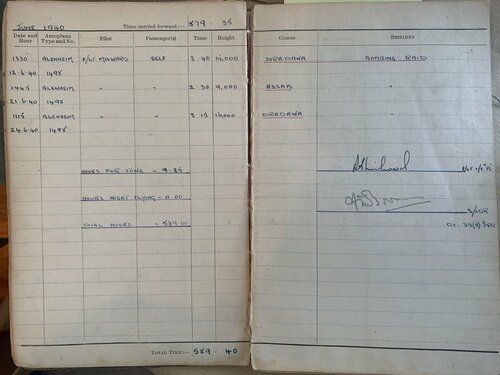 JUNE 1940 Time carried forward:— 579 . 35
Date and Hour Aeroplane Type and No. Pilot Passenger(s) Time Height Course REMARKS
1330 BLENHEIM F/LT MILLWARD SELF 3 . 40 15,000 DIREDAWA BOMBING RAID
12.6.40 1495
1445 BLENHEIM " " 2 . 30 9,000 ASSAB "
21.6.40 1495
1115 BLENHEIM " " 3 . 15 16000 DIREDAWA "
24.6.40 1495
HOURS FOR JUNE - 9.25
F/LT
HOURS NIGHT FLYING - 11.00
S/LDR
TOTAL HOURS - 589.00
O.C.
TOTAL TIME:— 589 . 40